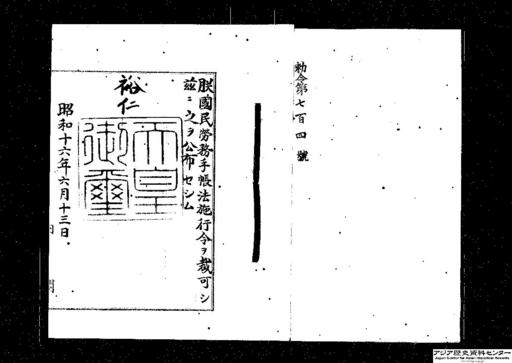 勅令第七百四號
朕國民勞務手帳法施行令ヲ裁可シ
茲ニ之ヲ公布セシム
裕仁
天皇
御璽
昭和十六年六月十三日
アジア歴史資料センター
Japan Center for Asian Historical Records